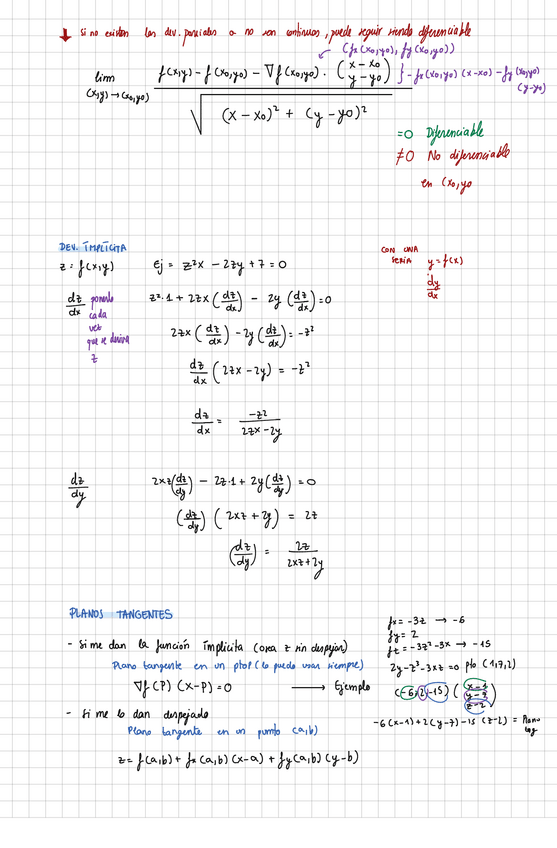 ↓ Si no existen las dev. parciales o no son continuas, puede seguir siendo diferenciable
(fx(x0,y0), fy(x0,y0))
lim (x,y)→(x0,y0) f(x,y) - f(x0,y0) - ∇f(x0,y0) · (x-x0 y-y0) } - fx(x0,y0) (x-x0) - fy(x0,y0) (y-y0)
√ (x-x0)² + (y-y0)²
=0 Diferenciable
≠0 No diferenciable
en (x0,y0
DEV. IMPLÍCITA
z = f(x,y) ej = z²x - 2zy + 7 = 0
CON UNA SERIA y = f(x)
dy/dx
dz/dx ponerlo cada vez que se deriva z
z²·1 + 2zx (dz/dx) - 2y (dz/dx) = 0
2zx (dz/dx) - 2y (dz/dx) = -z²
dz/dx (2zx - 2y) = -z²
dz/dx = -z²/2zx-2y
dz/dy 2xz(dz/dy) - 2z·1 + 2y(dz/dy) = 0
(dz/dy) (2xz + 2y) = 2z
(dz/dy) = 2z/2xz+2y
PLANOS TANGENTES
- Si me dan la función implícita (osea z sin despejar)
Plano tangente en un pto P (lo puedo usar siempre)
∇f(P) (x-P) = 0 → Ejemplo
fx = -3z → -6
fy = 2
fz = -3z²-3x → -15
2y - z³ - 3xz = 0 pto (1,7,2)
(-6,2,-15) (x-1 y-7 z-2)
-6(x-1) + 2(y-7) - 15 (z-2) = Plano tag
- Si me lo dan despejado
Plano tangente en un punto (a,b)
z = f(a,b) + fx(a,b) (x-a) + fy(a,b) (y-b)